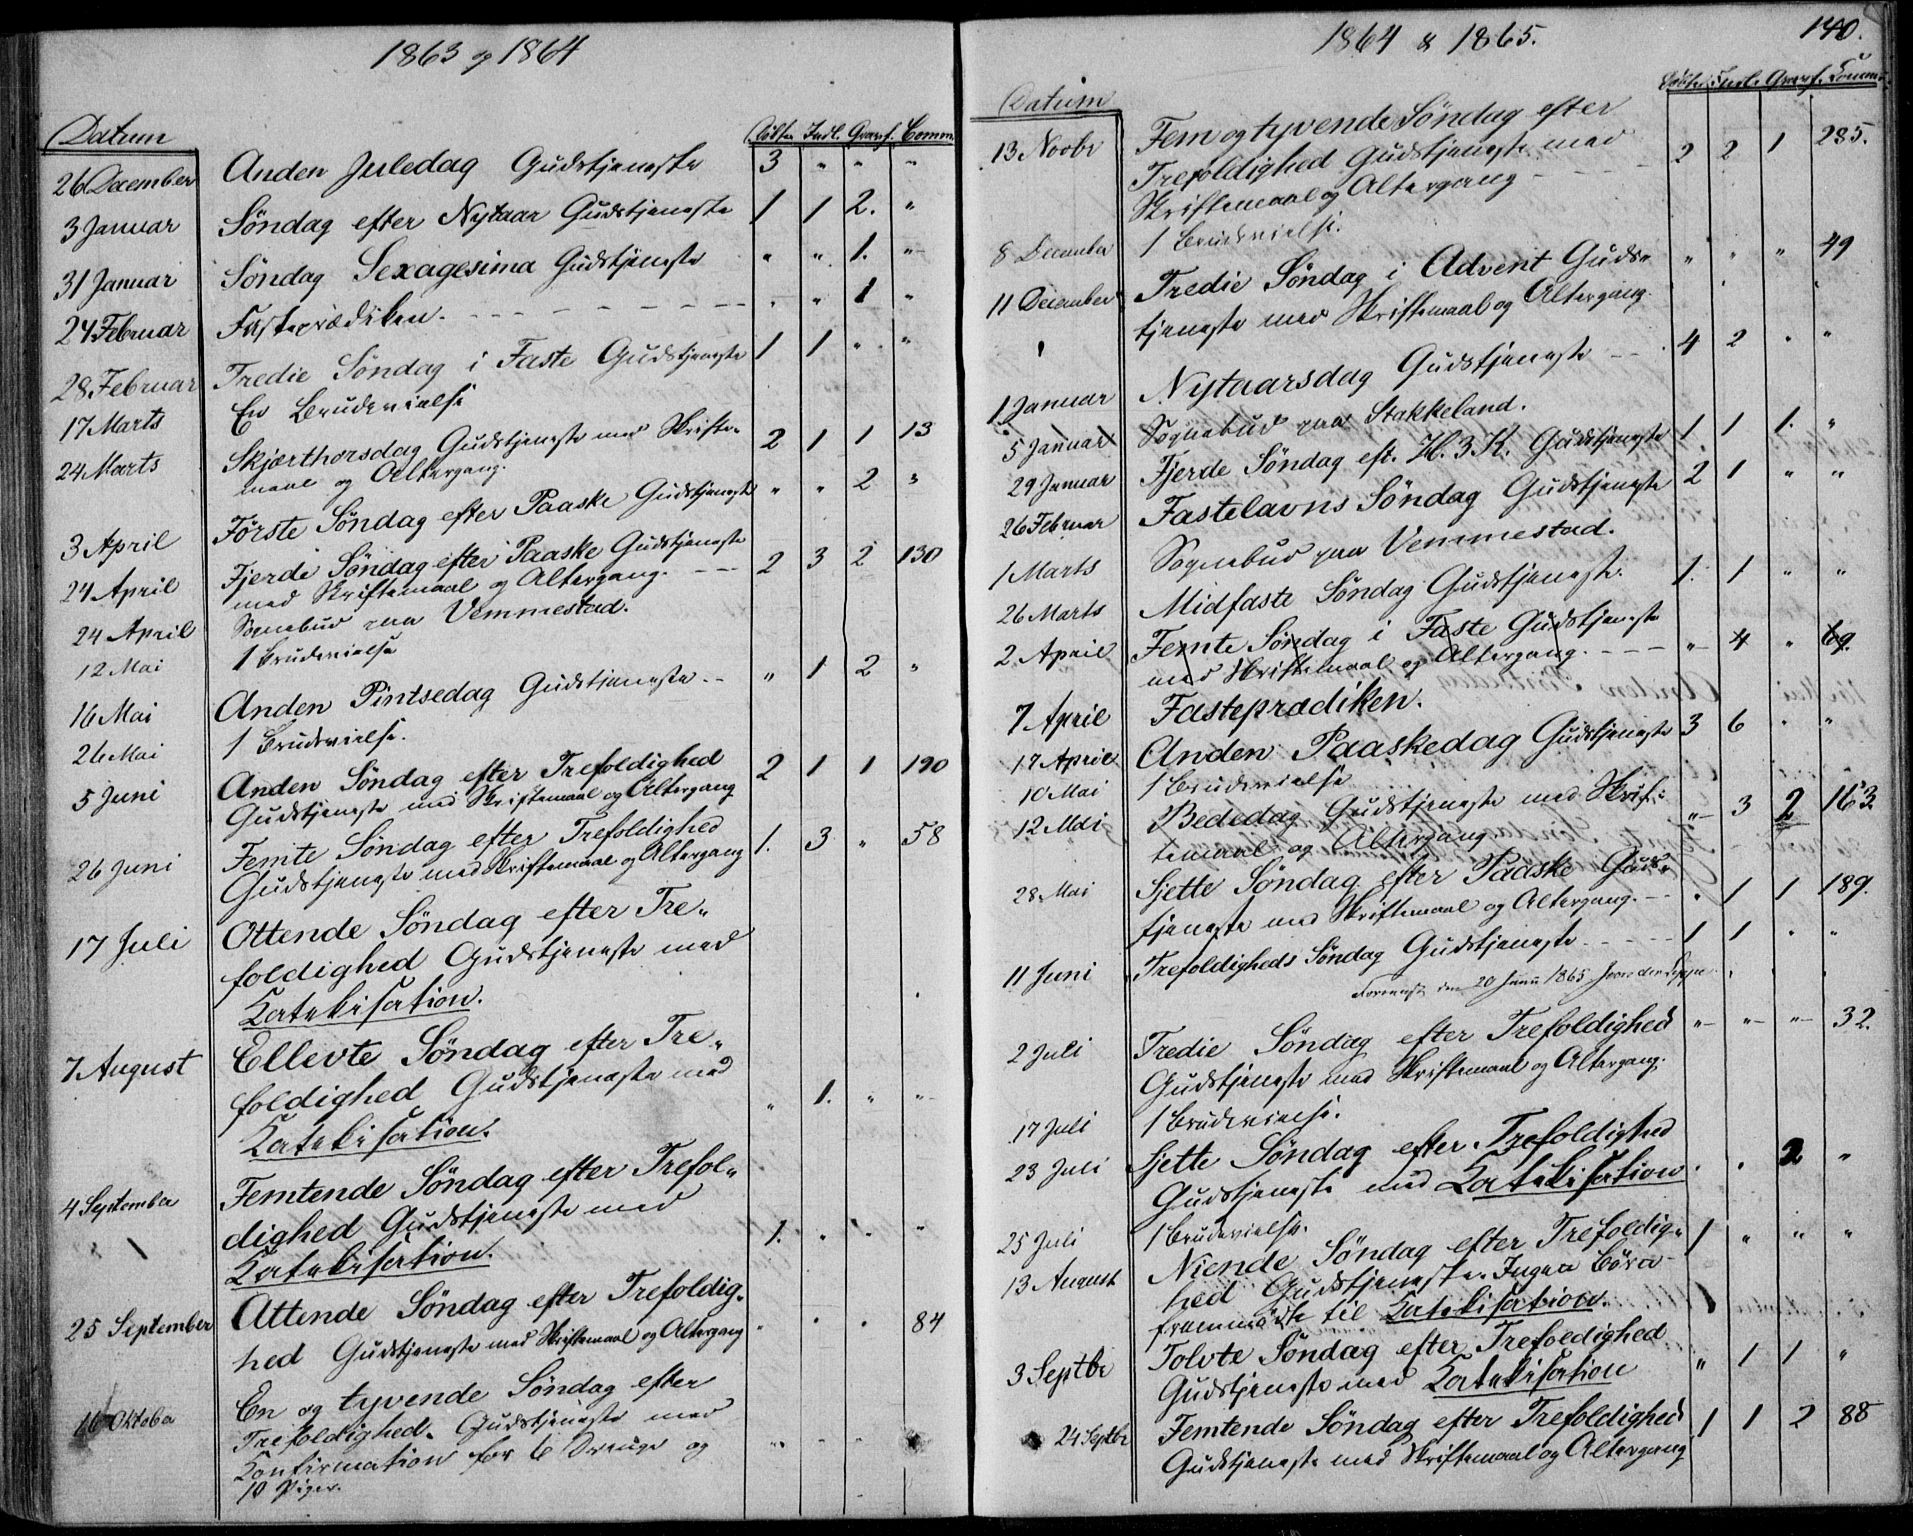 1863 og 1864
Datum Døbte. Indl. Gravf. Comm.
26 December Anden Juledag Gudstjeneste 3 " " "
3 Januar Søndag efter Nytaar Gudstjeneste 1 1 2. "
31 Januar Søndag Sexagesima Gudstjeneste " " 1. "
24 Februar Fasteprædiken. " " 1 "
28. Februar Tredie Søndag i Faste Gudstjeneste 1 1 " "
17 Marts En Brudevielse
24 Marts Skjærthorsdag Gudstjeneste med Skrifte- 2 1 1 13
maal og Altergang.
3 April Første Søndag efter Paaske Gudstjeneste " " 2 "
24 April Fjerde Søndag efter Paaske Gudstjeneste 2 3 2 130
med Skriftemaal og Altergang.
24 April Sognebud paa Vemmestad.
12 Mai 1 Brudevielse
16 Mai Anden Pintsedag Gudstjeneste " 1 2 "
26 Mai 1 Brudevielse.
5 Juni Anden Søndag efter Trefoldighed 2 1 1 190
Gudstjeneste med Skriftemaal og Altergang
26 Juni Femte Søndag efter Trefoldighed 1. 3 " 58
Gudstjeneste med Skriftemaal og Altergang
17 Juli Ottende Søndag efter Tre-
foldighed Gudstjeneste med
Katekisation.
7 August Ellevte Søndag efter Tre-
foldighed Gudstjeneste med " 1. " "
Katekisation.
4 September Femtende Søndag efter Trefol-
dighed Gudstjeneste med 1. " " "
Katekisation.
25 September Attende Søndag efter Trefoldig-
hed Gudstjeneste med Skriftemaal og Altergang " " " 84
16 Oktober En og tyvende Søndag efter
Trefoldighed. Gudstjeneste med
Konfirmation for 6 Drenge og
10 Piger.
1864 & 1865. 140.
Datum Døbte. Indl. Gravf. Comm.
13 Novbr Fem og tyvende Søndag efter
Trefoldighed Gudstjeneste med 2 2 1 285.
Skriftemaal og Altergang
8 December 1 Brudevielse.
11 December Tredie Søndag i Advent Guds- " " " 49
tjeneste med Skriftemaal og Altergang
1 Januar Nytaarsdag Gudstjeneste 4 2 " "
5 Januar Sognebud paa Stakkeland.
29 Januar Fjerde Søndag eft. H. 3 K. Gudstjeneste 1 1 1. "
26 Februar Fastelavns Søndag Gudstjeneste 2 1 " "
1 Marts Sognebud paa Vemmestad.
26 Marts Midfaste Søndag Gudstjeneste. 1. 1 " "
2 April Femte Søndag i Faste Gudstjeneste
med Skriftemaal og Altergang. " 4 " 69.
7 April Fasteprædiken.
17 April Anden Paaskedag Gudstjeneste 3 6 " "
10 Mai 1 Brudevielse
12 Mai Bededag Gudstjeneste med Skrif- " 3 2 163.
temaal og Altergang
28 Mai Sjette Søndag efter Paaske Guds-
tjeneste med Skriftemaal og Altergang. " 1 1 189.
11 Juni Trefoldigheds Søndag Gudstjeneste 1 1 " "
den 20 Juni 1865
2 Juli Tredie Søndag efter Trefoldighed " " " 32.
Gudstjeneste med Skriftemaal og Altergang.
17 Juli 1 Brudevielse.
23 Juli Sjette Søndag efter Trefoldighed
Gudstjeneste med Katekisation " " 2 "
25 Juli 1 Brudevielse.
13 August Niende Søndag efter Trefoldig- 1 " " "
hed Gudstjeneste. Ingen Børn
fremmødte til Katekisation.
3 Septbr Tolvte Søndag efter Trefoldighed
Gudstjeneste med Katekisation " 1 1 "
24 Septbr Femtende Søndag efter Trefoldighed 1 1 2 88
Gudstjeneste med Skriftemaal og Altergang